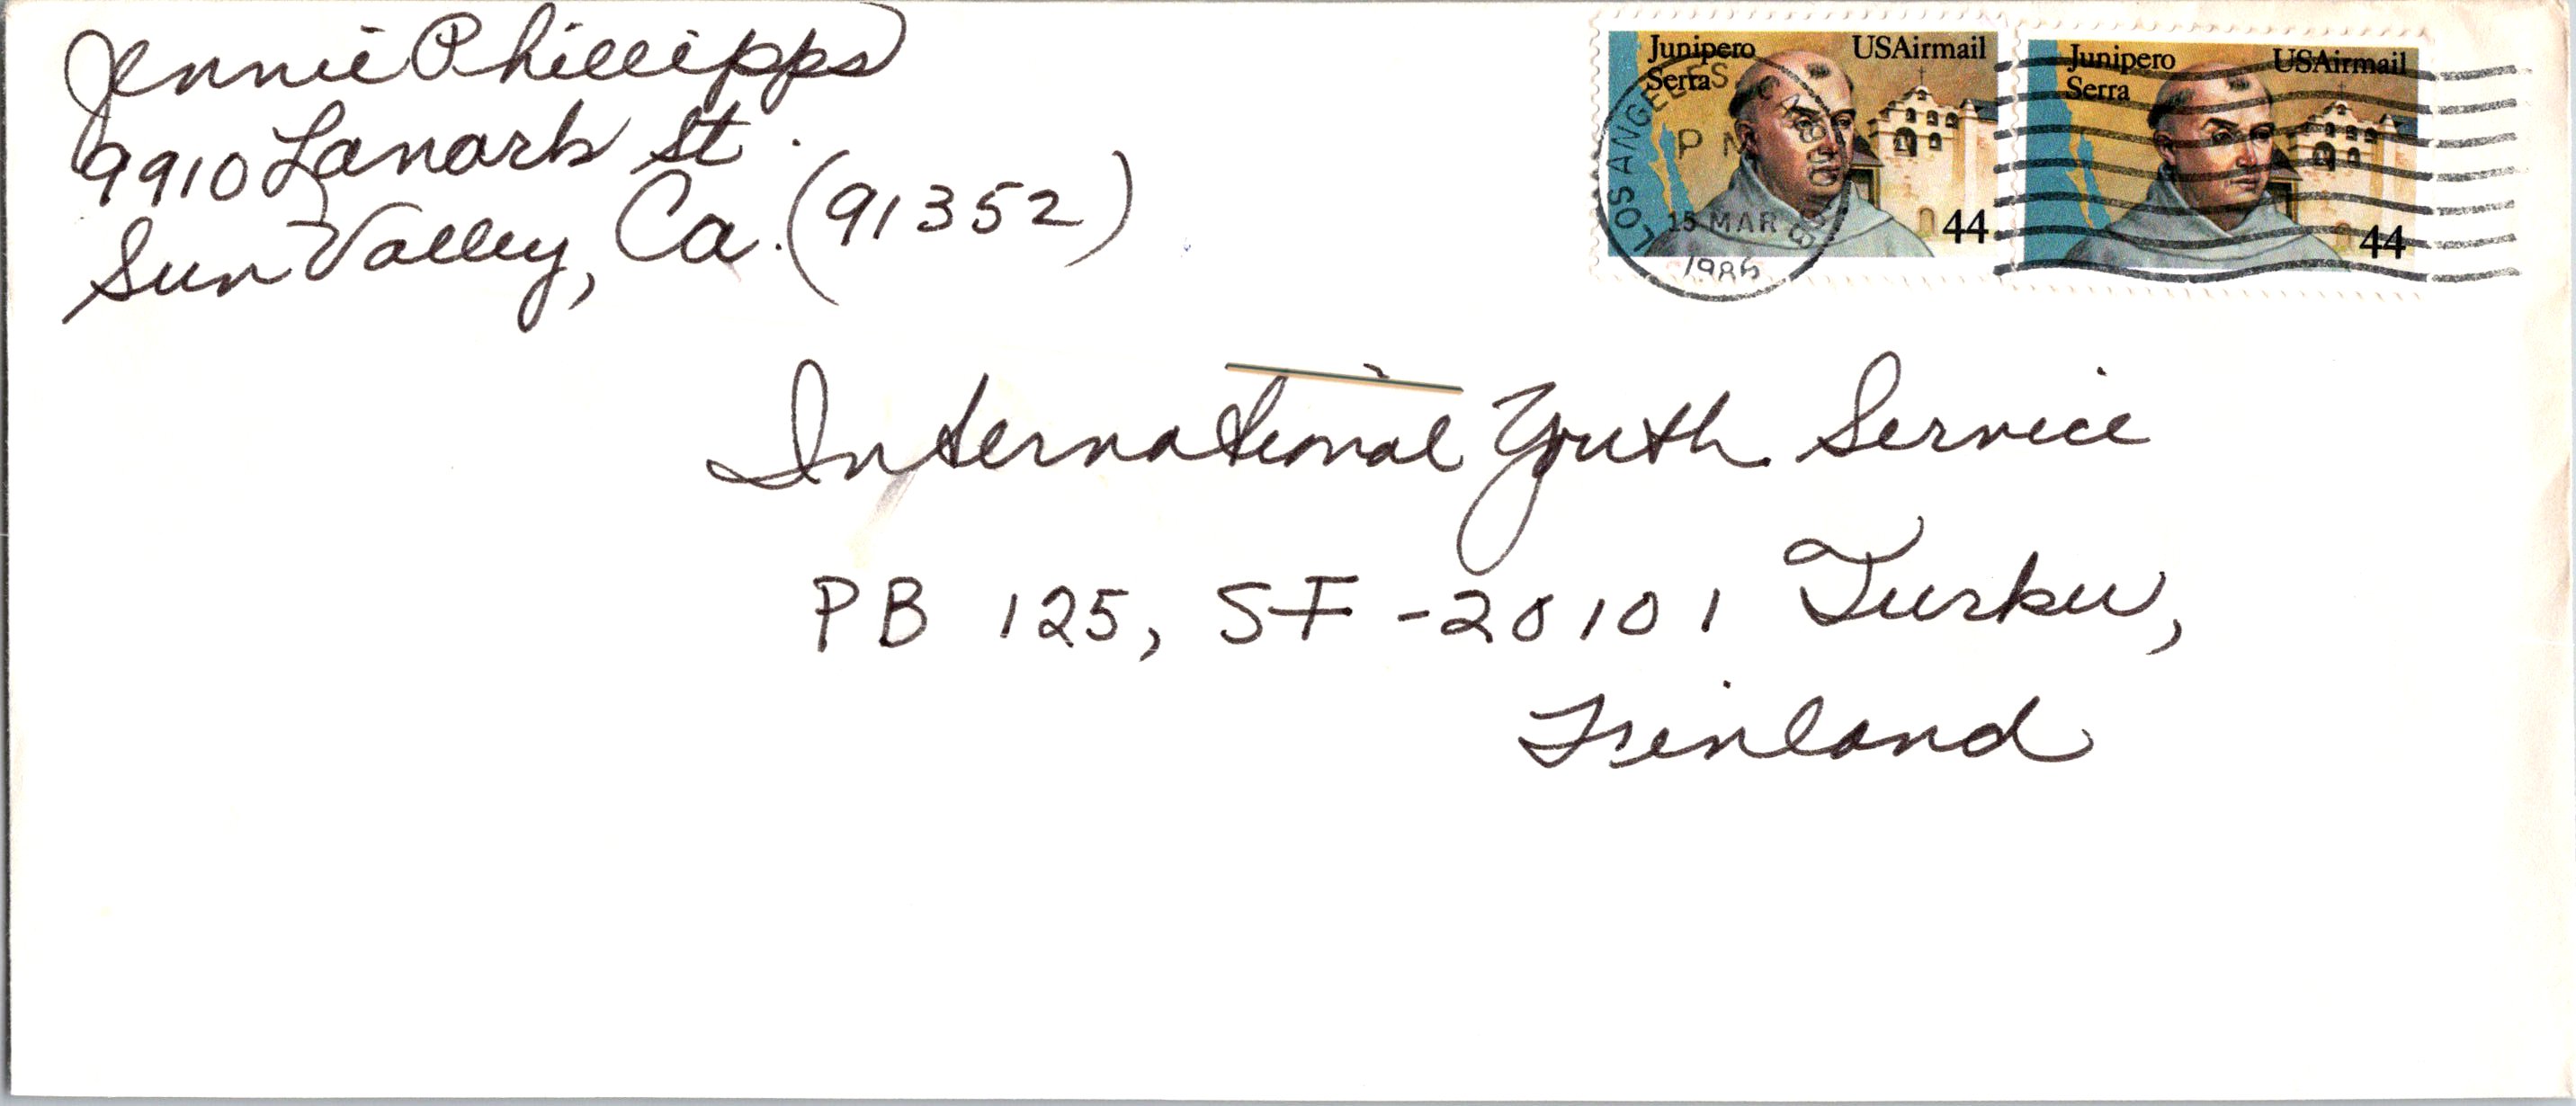 Jennie Phillipps
9910 Lanark St.
Sun Valley, Ca. (91352)
Junipero
Serra
USAirmail
44
Junipero
Serra
USAirmail
44
LOS ANGELES, CA
PM
15 MAR
1986
International Youth Service
PB 125, SF -20101 Turku,
Finland